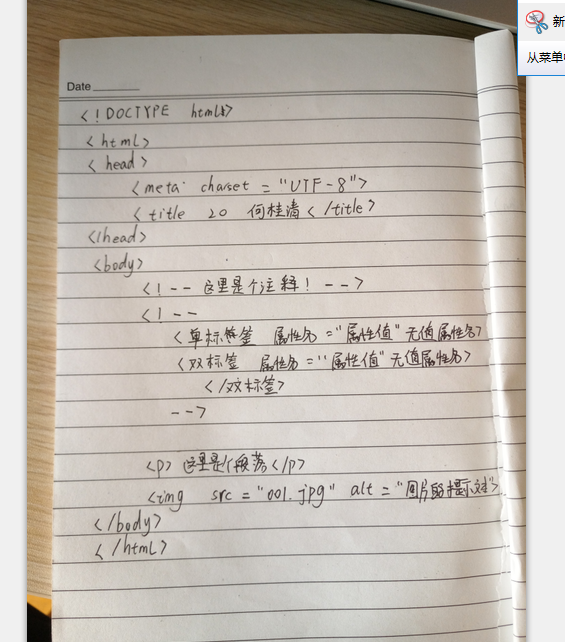 新
从菜单
Date
<!DOCTYPE html>
<html>
<head>
<meta charset = "UTF-8">
<title 20 何桂清</title>
</head>
<body>
<!-- 这里是个注释! -->
<!--
<单标签 属性名 ="属性值" 无值属性名>
<双标签 属性名 = "属性值" 无值属性名>
</双标签>
-->
<p> 这里是个段落</p>
<img src = "001.jpg" alt = "图片的提示文本">
</body>
</html>